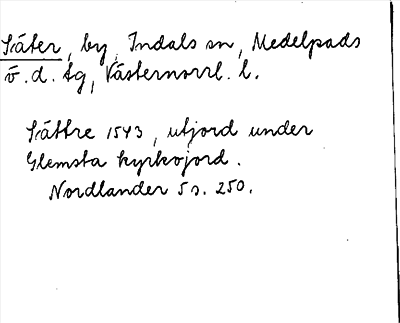 Säter, by, Indals sn, Medelpads
v.d. tg, Västernorrl. l.
Sättre 1543, utjord under
Glemsta kyrkojord.
Nordlander 5 s. 250.